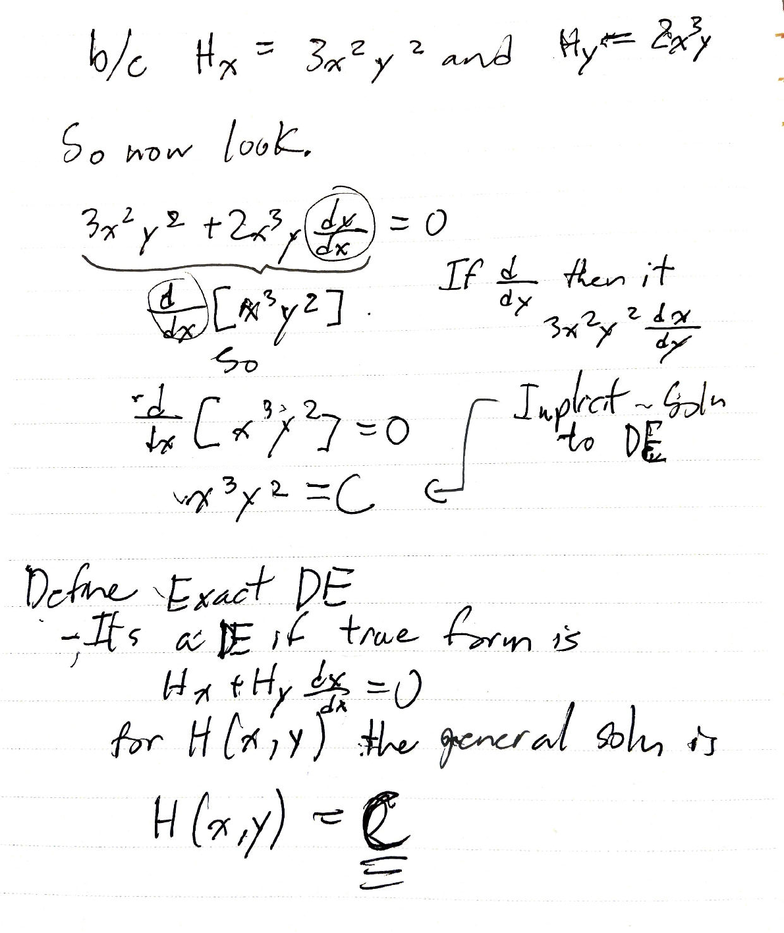 b/c Hx = 3x²y² and Hy = 2x³y
So now look.
3x²y² + 2x³y dy/dx = 0
d/dx [x³y²].
If d/dy then it
3x²y² dx/dy
So
d/dx [x³y²] = 0
Implicit ~ Soln
to DE
x³y² = C
Define Exact DE
- Its a DE if true form is
Hx + Hy dy/dx = 0
for H(x,y) the general soln is
H(x,y) = C